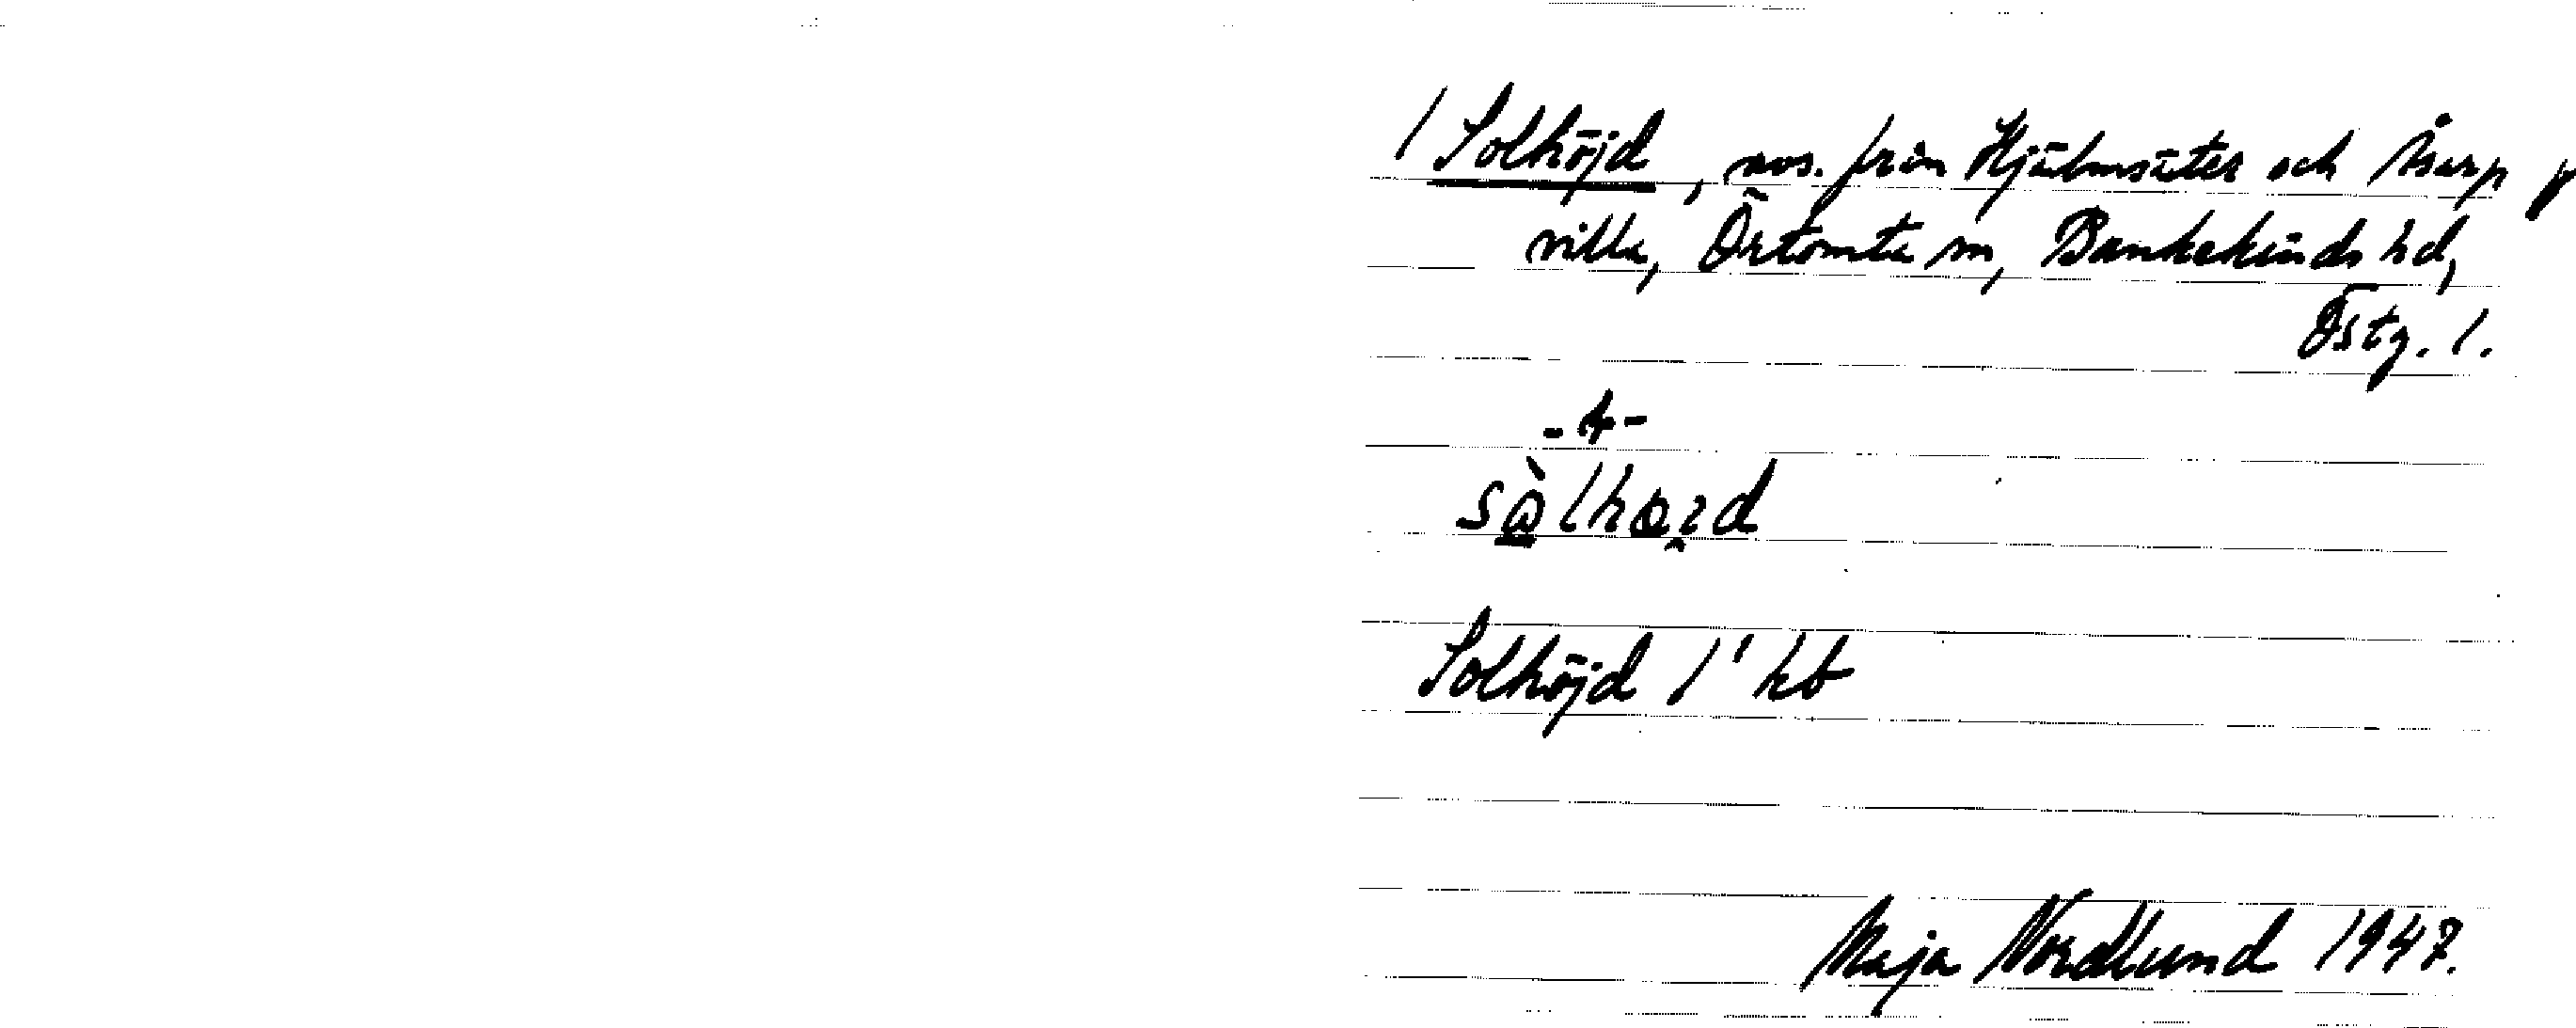 / Solhöjd, avs. från Hjälmsäter och Åsarp
villa, Örtomta sn, Bankekinds hd,
Östg. l.
-4-
sòlhøid
Solhöjd 1' kb
Maja Nordlund 1947.